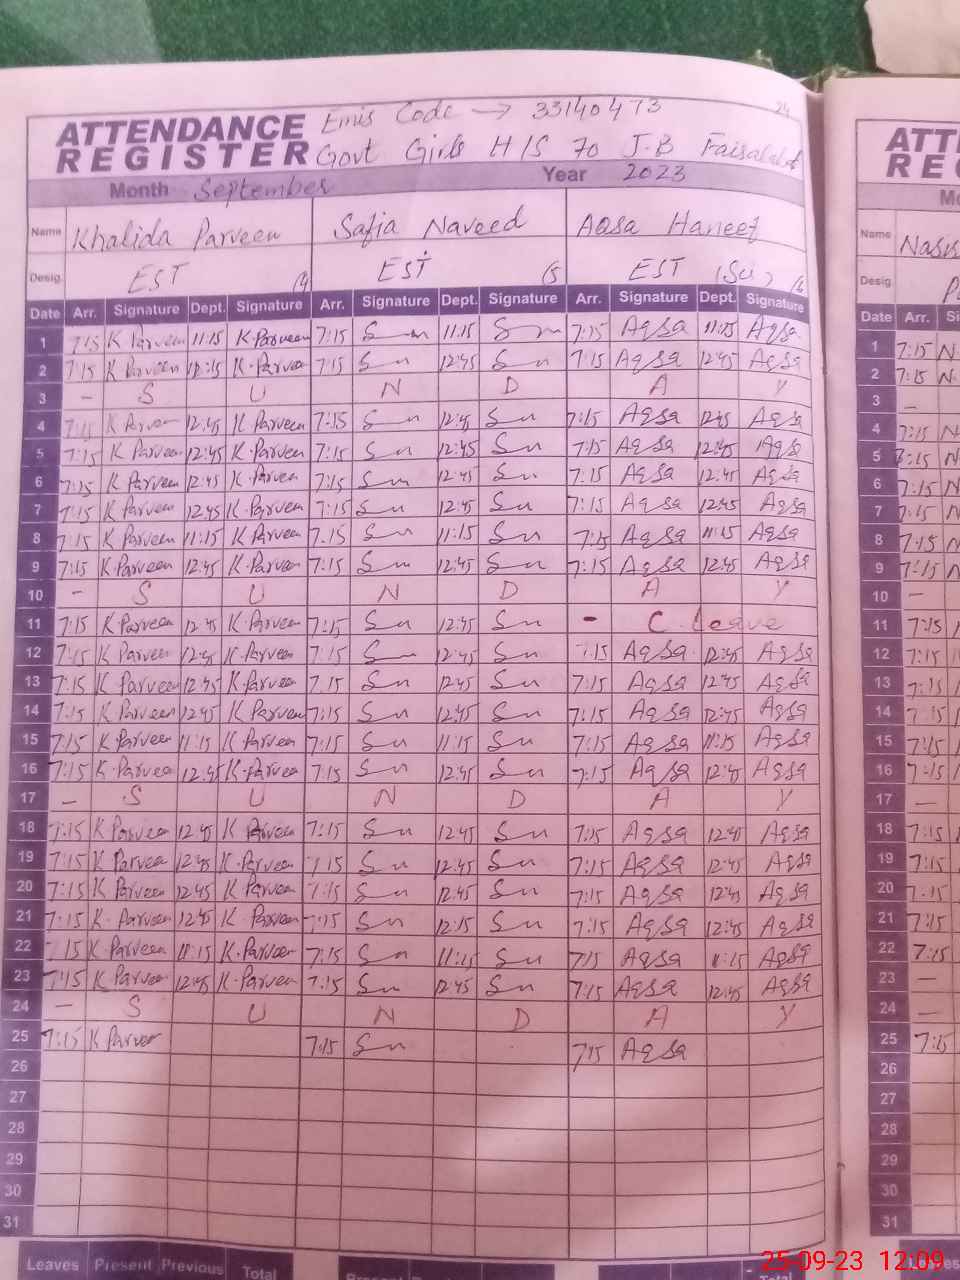 24
Emis Code → 33140473
ATTENDANCE REGISTER
Govt Girls H/S 70 J-B Faisalabad
Month September Year 2023
Name Khalida Parveen Safia Naveed Aqsa Haneef
Desig. EST EST EST (Sci)
Date Arr. Signature Dept. Signature Arr. Signature Dept. Signature Arr. Signature Dept. Signature
1 7:15 K Parveen 11:15 K.Parveen 7:15 Sn 11:15 Sn 7:15 Aqsa 11:15 Aqsa
2 7:15 K Parveen 12:15 K.Parveen 7:15 Sn 12:45 Sn 7:15 Aqsa 12:45 Aqsa
3 - S U N D A Y
4 7:15 K Parveen 12:45 K Parveen 7:15 Sn 12:45 Sn 7:15 Aqsa 12:45 Aqsa
5 7:15 K Parveen 12:45 K Parveen 7:15 Sn 12:45 Sn 7:15 Aqsa 12:45 Aqsa
6 7:15 K Parveen 12:45 K Parveen 7:15 Sn 12:45 Sn 7:15 Aqsa 12:45 Aqsa
7 7:15 K Parveen 12:45 K Parveen 7:15 Sn 12:45 Sn 7:15 Aqsa 12:45 Aqsa
8 7:15 K Parveen 11:15 K Parveen 7:15 Sn 11:15 Sn 7:15 Aqsa 11:15 Aqsa
9 7:15 K.Parveen 12:45 K.Parveen 7:15 Sn 12:45 Sn 7:15 Aqsa 12:45 Aqsa
10 - S U N D A Y
11 7:15 K Parveen 12:45 K Parveen 7:15 Sn 12:45 Sn - C. Leave
12 7:15 K Parveen 12:45 K Parveen 7:15 Sn 12:45 Sn 7:15 Aqsa 12:45 Aqsa
13 7:15 K Parveen 12:45 K.Parveen 7:15 Sn 12:45 Sn 7:15 Aqsa 12:45 Aqsa
14 7:15 K Parveen 12:45 K Parveen 7:15 Sn 12:45 Sn 7:15 Aqsa 12:45 Aqsa
15 7:15 K Parveen 11:15 K Parveen 7:15 Sn 11:15 Sn 7:15 Aqsa 11:15 Aqsa
16 7:15 K.Parveen 12:45 K.Parveen 7:15 Sn 12:45 Sn 7:15 Aqsa 12:45 Aqsa
17 - S U N D A Y
18 7:15 K Parveen 12:45 K Parveen 7:15 Sn 12:45 Sn 7:15 Aqsa 12:45 Aqsa
19 7:15 K Parveen 12:45 K.Parveen 7:15 Sn 12:45 Sn 7:15 Aqsa 12:45 Aqsa
20 7:15 K Parveen 12:45 K Parveen 7:15 Sn 12:45 Sn 7:15 Aqsa 12:45 Aqsa
21 7:15 K. Parveen 12:45 K. Parveen 7:15 Sn 12:15 Sn 7:15 Aqsa 12:45 Aqsa
22 7:15 K Parveen 11:15 K.Parveen 7:15 Sn 11:15 Sn 7:15 Aqsa 11:15 Aqsa
23 7:15 K Parveen 12:45 K.Parveen 7:15 Sn 12:45 Sn 7:15 Aqsa 12:45 Aqsa
24 - S U N D A Y
25 7:15 K Parveen 7:15 Sn 7:15 Aqsa
26
27
28
29
30
31
Leaves Present Previous Total
Total
Name
Desig.
Date Arr.
1 7:15 N
2 7:15 N
3 -
4 7:15 N
5 7:15 N
6 7:15 N
7 7:15 N
8 7:15 N
9 7:15 N
10 -
11 7:15
12 7:15
13 7:15
14 7:15
15 7:15
16 7:15
17 -
18 7:15
19 7:15
20 7:15
21 7:15
22 7:15
23 -
24 -
25 7:15
26
27
28
29
30
31
25-09-23 12:09